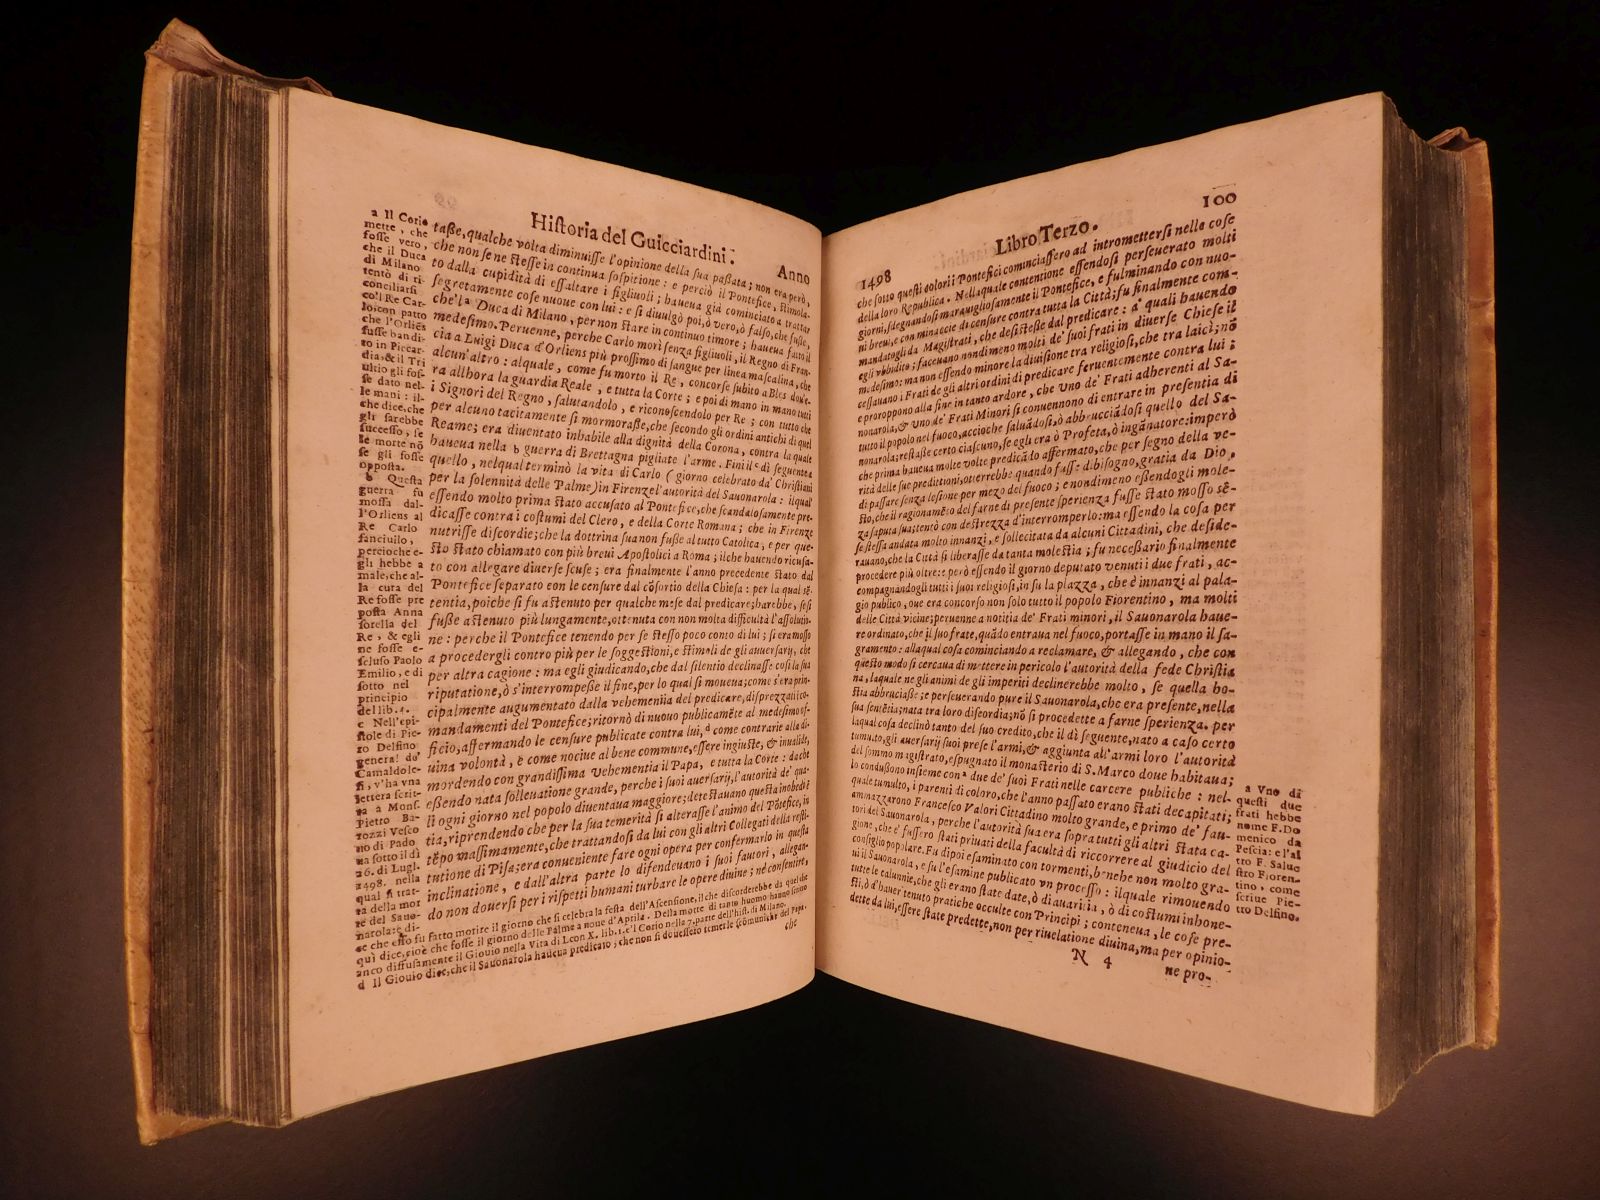 Historia del Guicciardini.
Anno
taße, qualche volta diminuisse l'opinione della sua passata; non era però,
che non se ne stesse in continua sospitione: e perciò il Pontefice, stimola-
to dalla cupidità di essaltare i figliuoli; haueua già cominciato a trattar
segretamente cose nuoue con lui: e si diuulgò poi, ò vero, ò falso, che fusse,
che'l Duca di Milano, per non stare in continuo timore; haueua fatto il
medesimo. Peruenne, perche Carlo morì senza figliuoli, il Regno di Fran-
cia a Luigi Duca d'Orliens più prossimo di sangue per linea mascalina, che
alcun'altro: alquale, come fu morto il Re, concorse subito a Bles dou'e-
ra allhora la guardia Reale, e tutta la Corte; e poi di mano in mano tutti
i Signori del Regno, salutandolo, e riconoscendolo per Re; con tutto che
per alcuno tacitamente si mormoraße, che secondo gli ordini antichi di quel
Reame; era diuentato inhabile alla dignità della Corona, contra la quale
haueua nella b guerra di Brettagna pigliate l'arme. Finì il c dì seguente a
quello, nelqual terminò la vita di Carlo (giorno celebrato da' Christiani
per la solennità delle Palme) in Firenze l'autorità del Sauonarola: ilqual'
essendo molto prima stato accusato al Pontefice, che scandalosamente pre-
dicasse contra i costumi del Clero, e della Corte Romana; che in Firenze
nutrisse discordie; che la dottrina sua non fuße al tutto Catolica, e per que-
sto stato chiamato con più breui Apostolici a Roma; ilche hauendo ricusa-
to con allegare diuerse scuse; era finalmente l'anno precedente stato dal
Pontefice separato con le censure dal cōsortio della Chiesa: per la qual sē-
tentia, poiche si fu astenuto per qualche mese dal predicare; harebbe, se si
fuße astenuto più lungamente, ottenuta con non molta difficultà l'assolutio-
ne: perche il Pontefice tenendo per se stesso poco conto di lui; si era mosso
a procedergli contro più per le soggestioni, e stimoli de gli auuersarij, che
per altra cagione: ma egli giudicando, che dal silentio declinasse così la sua
riputatione, ò s'interrompeße il fine, per lo qual si moueua; come s'era prin-
cipalmente augumentato dalla vehementia del predicare, disprezzati i co-
mandamenti del Pontefice; ritornò di nuouo publicamēte al medesimo of-
ficio, affermando le censure publicate contra lui, d come contrarie alla di-
uina volontà, e come nociue al bene commune, essere ingiuste, & inualide,
mordendo con grandissima vehementia il Papa, e tutta la Corte: dacōt
eßendo nata solleuatione grande, perche i suoi auersarij, l'autorità de' qua-
li ogni giorno nel popolo diuentaua maggiore; detestauano questa inobediē
tia, riprendendo che per la sua temerità si alterasse l'animo del Pōtefice, in
tēpo massimamente, che trattandosi da lui con gli altri Collegati della resti-
tutione di Pisa; era conueniente fare ogni opera per confermarlo in questa
inclinatione, e dall'altra parte lo difendeuano i suoi fautori, allegan-
do non douersi per i rispetti humani turbare le opere diuine; nè consentire,
che
a Il Corio
mette, che
fosse vero,
che il Duca
di Milano
tentò di ri-
conciliarsi
co'l Re Car-
lo; con patto
che l'Orliēs
fusse bandi-
to in Piccar-
dia, & il Tri
ultio gli fos-
se dato nel-
le mani: il-
che dice, che
gli sarebbe
successo, se
le morte nō
se gli fosse
opposta.
b Questa
guerra fu
mossa dal-
l'Orliens al
Re Carlo
fanciullo,
percioche e-
gli hebbe a
male, che al-
la cura del
Re fosse pre
posta Anna
sorella del
Re, & egli
ne fosse e-
scluso Paolo
Emilio, e di
sotto nel
principio
del lib. 4.
c Nell'epi-
stole di Pie-
ro Delfino
general do'
Camaldole-
si, v'ha vna
lettera scrit-
ta a Mons.
Pietro Ba-
rozzi Vesco
uo di Pado
ua sotto il dì
26. di Lugl.
1498. nella
qual si trat-
ta della mor
te del Sauo-
narola: & di-
ce che esso su fatto morire il giorno che si celebra la festa dell'Ascensione, il che discorderebbe da quel che
quì dice, cioè che fosse il giorno delle Palme a noue d'Aprile. Della morte di tanto huomo hanno scritto
anco diffusamente il Giouio nella Vita di Leon X. lib. 1. e'l Corio nella 7. parte dell'hist. di Milano.
d Il Giouio dice, che il Sauonarola haueua predicato; che non si douessero temer le scōmuniche del Papa.
100
Libro Terzo.
1498
che sotto questi colori i Pontefici cominciassero ad intromettersi nelle cose
della loro Republica. Nella quale contentione essendosi perseuerato molti
giorni, sdegnandosi marauigliosamente il Pontefice, e fulminando con nuo-
ui breui, e con minaccie di censure contra tutta la Città; fu finalmente com-
mandatogli da Magistrati, che desisteße dal predicare: a' quali hauendo
egli vbbidito; faceuano nondimeno molti de' suoi frati in diuerse Chiese il
medesimo: ma non essendo minore la diuisione tra religiosi, che tra laici; nō
cessauano i Frati de gli altri ordini di predicare feruentemente contra lui;
e proroppono alla fine in tanto ardore, che vno de' Frati adherenti al Sa-
uonarola, & vno de' Frati Minori si conuennono di entrare in presentia di
tutto il popolo nel fuoco, accioche saluādosi, ò abbrucciādosi quello del Sa-
uonarola; restaße certo ciascuno, se egli era ò Profeta, ò ingānatore: imperò
che prima haueua molte volte predicādo affermato, che per segno della ve-
rità delle sue predittioni, otterrebbe quando fusse di bisogno, gratia da Dio,
di passare senza lesione per mezo del fuoco; e nondimeno eßendogli mole-
sto, che il ragionamēto del farne di presente sperienza fusse stato mosso sē-
za saputa sua; tentò con destrezza d'interromperlo: ma essendo la cosa per
se stessa andata molto innanzi, e sollecitata da alcuni Cittadini, che deside-
rauano, che la Città si liberasse da tanta molestia; fu necessario finalmente
procedere più oltre: e però essendo il giorno deputato venuti i due frati, ac-
compagnandogli tutti i suoi religiosi, in su la piazza, che è innanzi al pala-
gio publico, oue era concorso non solo tutto il popolo Fiorentino, ma molti
delle Città vicine; peruenne a notitia de' Frati minori, il Sauonarola haue-
re ordinato, che il suo frate, quādo entraua nel fuoco, portasse in mano il sa-
gramento: alla qual cosa cominciando a reclamare, & allegando, che con
questo modo si cercaua di mettere in pericolo l'autorità della fede Christia
na, laquale ne gli animi de gli imperiti declinerebbe molto, se quella ho-
stia abbruciaße; e perseuerando pure il Sauonarola, che era presente, nella
sua sentētia; nata tra loro discordia; nō si procedette a farne sperienza. per
laqual cosa declinò tanto del suo credito, che il dì seguente, nato a caso certo
tumulto, gli auersarij suoi prese l'armi, & aggiunta all'armi loro l'autorità
del sommo magistrato, espugnato il monasterio di S. Marco doue habitaua;
lo condußono insieme con a due de' suoi Frati nelle carcere publiche: nel-
quale tumulto, i parenti di coloro, che l'anno passato erano stati decapitati;
ammazzarono Francesco Valori Cittadino molto grande, e primo de' fau-
tori del Sauonarola, perche l'autorità sua era sopra tutti gli altri stata ca-
gione, che e' fussero stati priuati della facultà di ricorrere al giudicio del
consiglio popolare. Fu dipoi esaminato con tormenti, benche non molto gra-
ui il Sauonarola, e su l'esamine publicato vn processo: ilquale rimouendo
tutte le calunnie, che gli erano state date, ò di auaritia, ò di costumi inhone-
sti, ò d'hauer tenuto pratiche occulte con Principi; conteneua, le cose pre-
dette da lui, essere state predette, non per riuelatione diuina, ma per opinio-
N 4
ne pro-
a Vno dā
questi due
frati hebbe
nome F. Do
menico da
Pescia: e l'al
tro F. Salue
stro Fioren-
tino, come
scriue Pie-
tro Delfino.